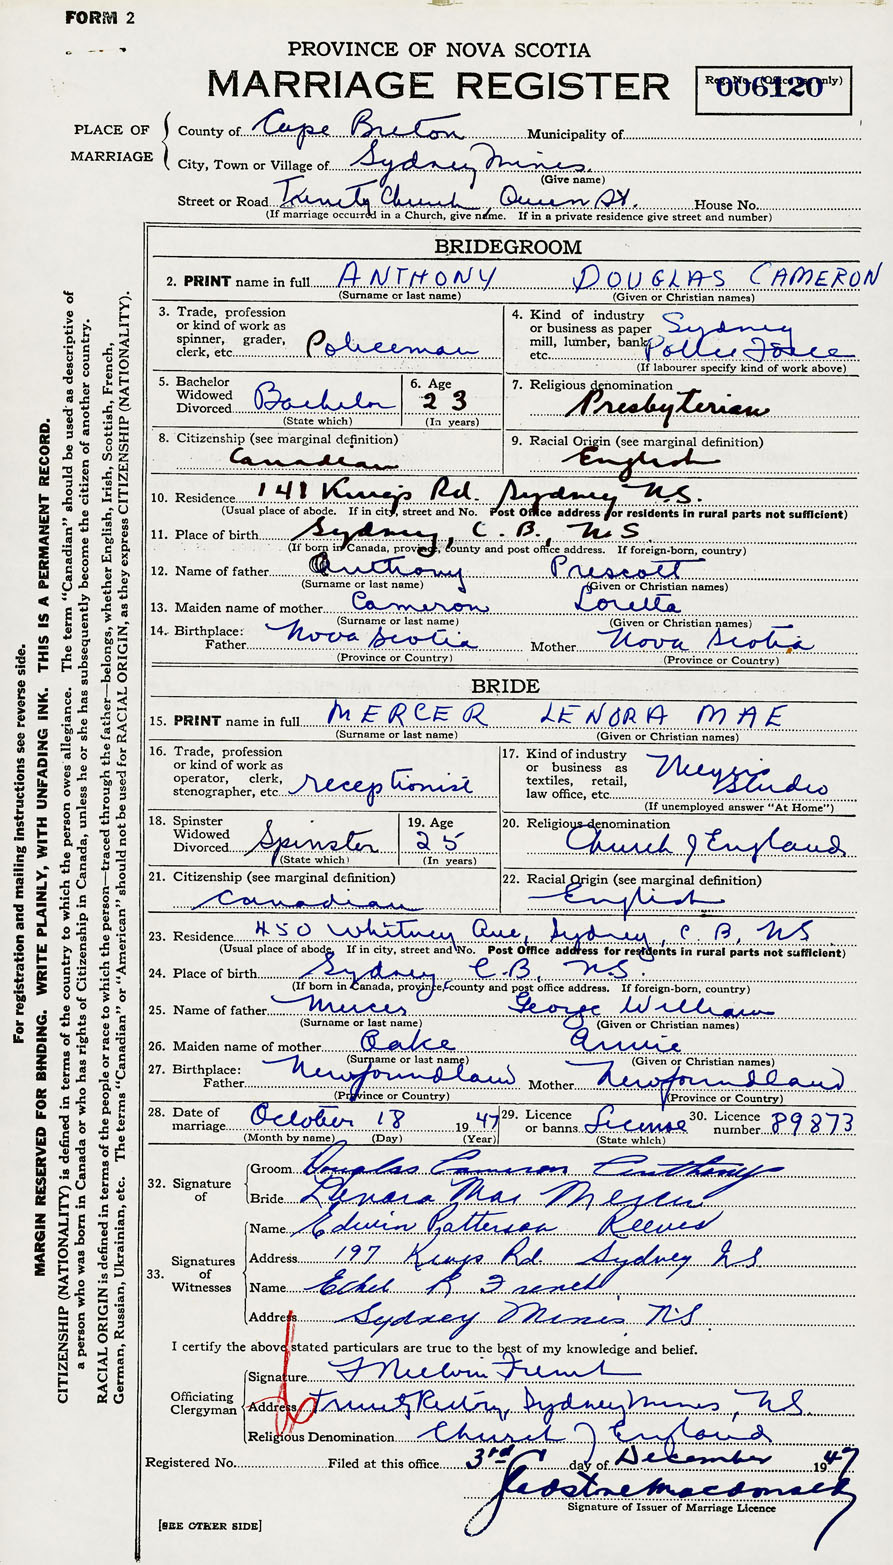 FORM 2
PROVINCE OF NOVA SCOTIA
MARRIAGE REGISTER
Reg. No. (Office use only)
006120
PLACE OF MARRIAGE
County of Cape Breton Municipality of
City, Town or Village of Sydney Mines.
(Give name)
Street or Road Trinity Church, Queen St. House No.
(If marriage occurred in a Church, give name. If in a private residence give street and number)
BRIDEGROOM
2. PRINT name in full ANTHONY DOUGLAS CAMERON
(Surname or last name) (Given or Christian names)
3. Trade, profession or kind of work as spinner, grader, clerk, etc. Policeman
4. Kind of industry or business as paper mill, lumber, bank, etc. Sydney Police Force
(If labourer specify kind of work above)
5. Bachelor Widowed Divorced Bachelor
(State which)
6. Age 23
(In years)
7. Religious denomination
Presbyterian
8. Citizenship (see marginal definition)
Canadian
9. Racial Origin (see marginal definition)
English
10. Residence 141 Kings Rd. Sydney N.S.
(Usual place of abode. If in city, street and No. Post Office address for residents in rural parts not sufficient)
11. Place of birth Sydney, C.B., N.S.
(If born in Canada, province, county and post office address. If foreign-born, country)
12. Name of father Anthony Prescott
(Surname or last name) (Given or Christian names)
13. Maiden name of mother Cameron Loretta
(Surname or last name) (Given or Christian names)
14. Birthplace: Father Nova Scotia Mother Nova Scotia
(Province or Country) (Province or Country)
BRIDE
15. PRINT name in full MERCER LENORA MAE
(Surname or last name) (Given or Christian names)
16. Trade, profession or kind of work as operator, clerk, stenographer, etc. receptionist
17. Kind of industry or business as textiles, retail, law office, etc. Studio
(If unemployed answer "At Home")
18. Spinster Widowed Divorced Spinster
(State which)
19. Age 25
(In years)
20. Religious denomination
Church of England
21. Citizenship (see marginal definition)
Canadian
22. Racial Origin (see marginal definition)
English
23. Residence 450 Whitney Ave, Sydney, C B, NS
(Usual place of abode. If in city, street and No. Post Office address for residents in rural parts not sufficient)
24. Place of birth Sydney C.B., N.S.
(If born in Canada, province, county and post office address. If foreign-born, country)
25. Name of father Mercer George William
(Surname or last name) (Given or Christian names)
26. Maiden name of mother Oake Annie
(Surname or last name) (Given or Christian names)
27. Birthplace: Father Newfoundland Mother Newfoundland
(Province or Country) (Province or Country)
28. Date of marriage October 18 1947
(Month by name) (Day) (Year)
29. Licence or banns License
(State which)
30. Licence number 89873
32. Signature of
Groom Douglas Cameron Anthony
Bride Lenora Mae Mercer
33. Signatures of Witnesses
Name Edwin Patterson Reeves
Address 197 Kings Rd. Sydney NS
Name Ethel R French
Address Sydney Mines N.S
I certify the above stated particulars are true to the best of my knowledge and belief.
Officiating Clergyman
Signature Melvin French
Address Trinity Rectory, Sydney Mines, N.S.
Religious Denomination Church of England
Registered No. Filed at this office 3rd day of December 1947
Gladstone Macdonald
Signature of Issuer of Marriage Licence
[SEE OTHER SIDE]
For registration and mailing instructions see reverse side.
MARGIN RESERVED FOR BINDING. WRITE PLAINLY, WITH UNFADING INK. THIS IS A PERMANENT RECORD.
CITIZENSHIP (NATIONALITY) is defined in terms of the country to which the person owes allegiance. The term "Canadian" should be used as descriptive of
a person who was born in Canada or who has rights of Citizenship in Canada, unless he or she has subsequently become the citizen of another country.
RACIAL ORIGIN is defined in terms of the people or race to which the person—traced through the father—belongs, whether English, Irish, Scottish, French,
German, Russian, Ukrainian, etc. The terms "Canadian" or "American" should not be used for RACIAL ORIGIN, as they express CITIZENSHIP (NATIONALITY).